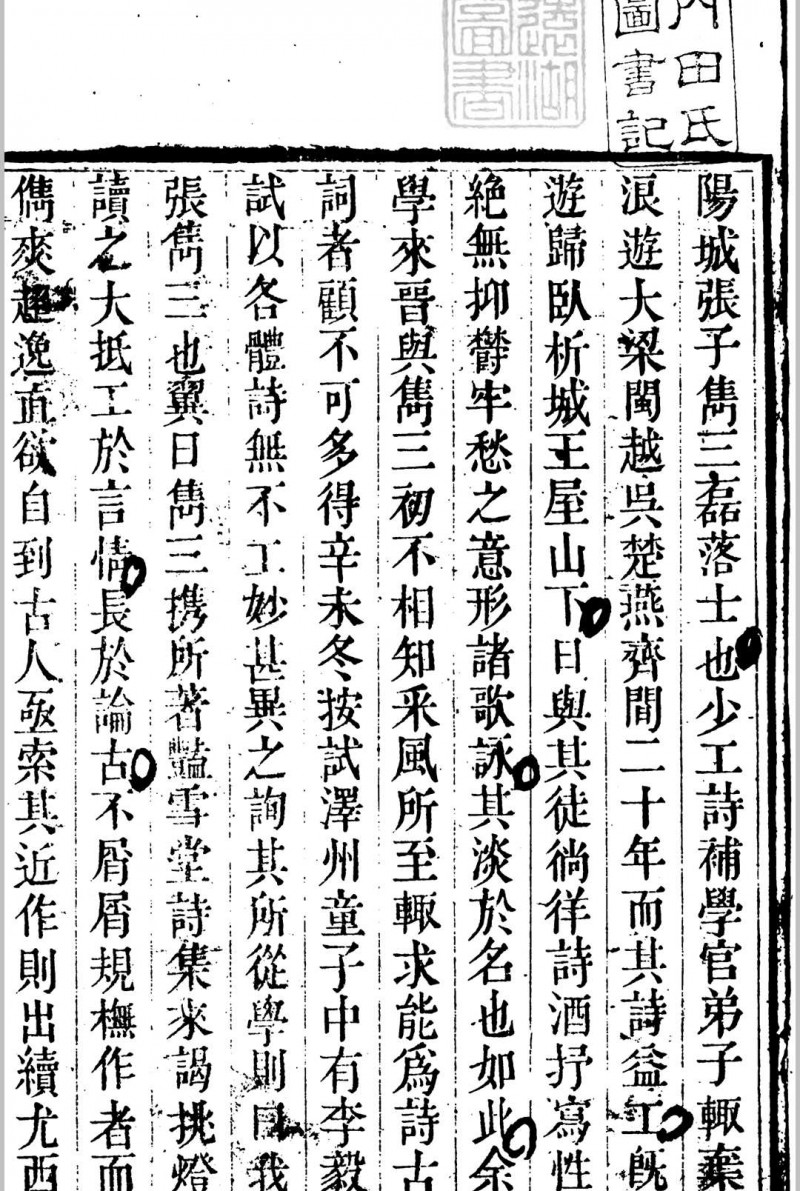 內田氏
圖書記
陽城張子雋三磊落士也少工詩補學官弟子輒棄
浪遊大梁閩越吳楚燕齊間二十年而其詩益工既
遊歸臥析城王屋山下日與其徒徜徉詩酒抒寫性
絕無抑鬱牢愁之意形諸歌詠其淡於名也如此余
學來晉與雋三初不相知采風所至輒求能為詩古
詞者顧不可多得辛未冬按試澤州童子中有李毅
試以各體詩無不工妙甚異之詢其所從學則曰我
張雋三也翼日雋三携所著豔雪堂詩集來謁挑燈
讀之大抵工於言情長於論古不屑屑規橅作者而
儁爽超逸直欲自到古人亟索其近作則出續尤西